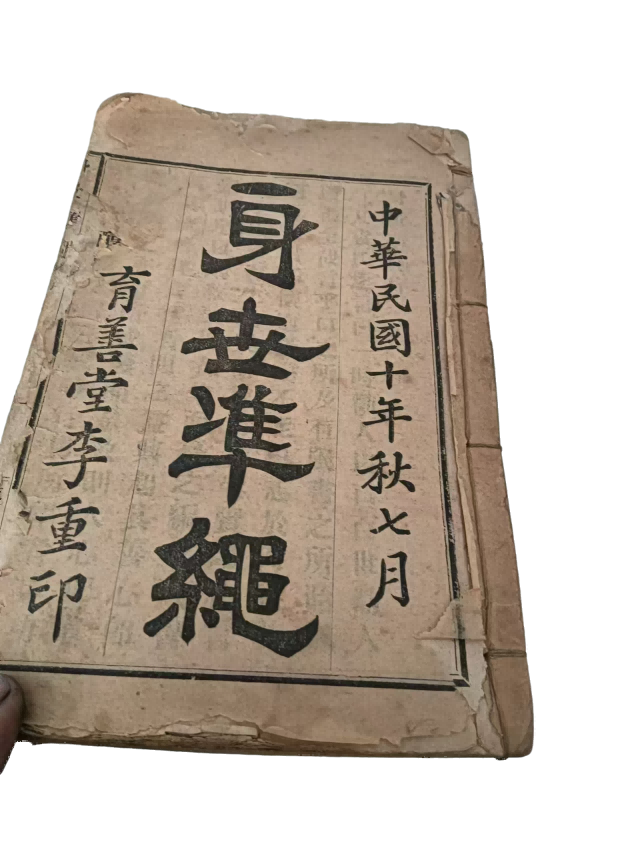 中華民國十年秋七月
身世準繩
育善堂李重印